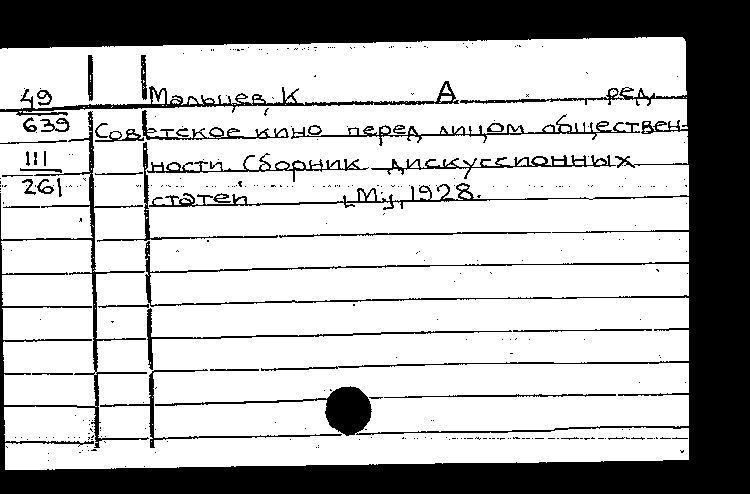 49 Мальцев, К А , ред.
639 Советское кино перед лицом обществен-
111 ности. Сборник дискуссионных
261 статей. [М.], 1928.